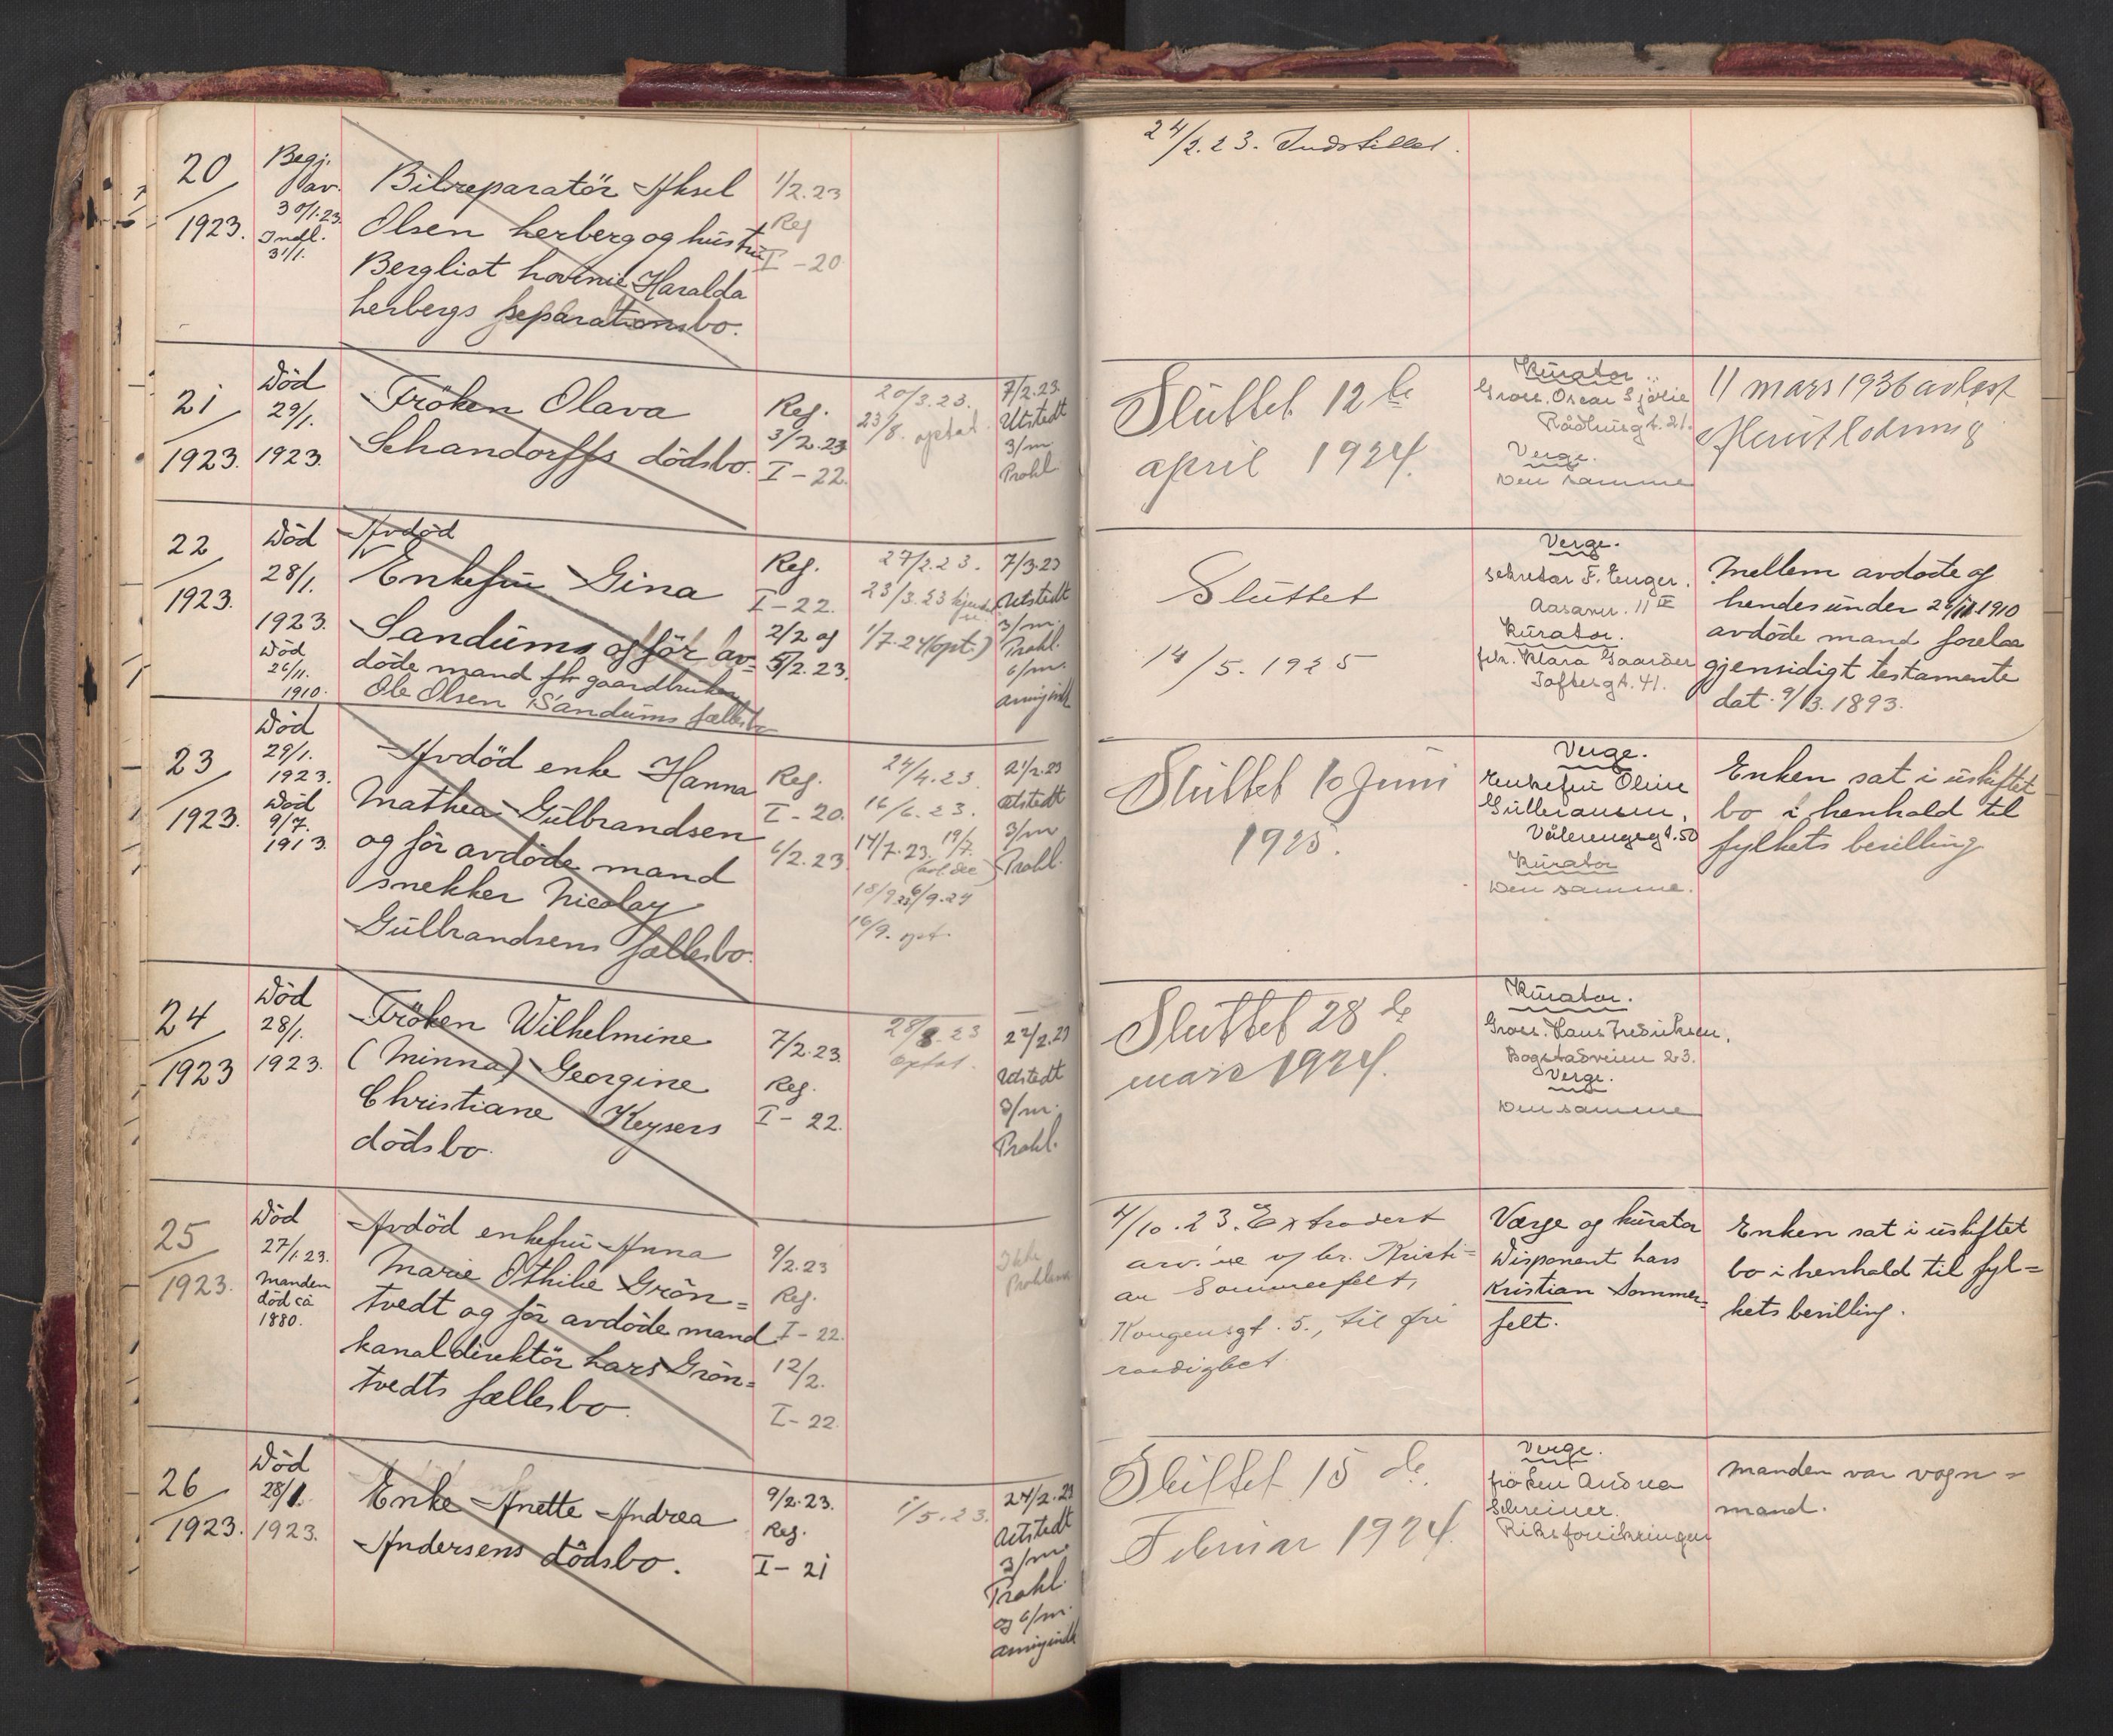 20
1923.
Begj.
av.
30/1.23.
Indl.
31/1.
Bilreparatör Aksel
Olsen Herberg og hustru
Bergliot Hovine Haralda
Herbergs separationsbo.
1/2.23
Reg
I-20
24/2.23. Indstillet.
21
1923.
Död
29/1.
1923.
Fröken Olava
Schandorffs dödsbo.
Reg.
3/2.23
I-22.
20/3.23.
23/8. optat.
7/2.23.
Utstedt
3/m
Prokl.
Sluttet 12 te
april 1924.
Kurator
Gross. Oscar Sjölie
Rådhusgt. 21.
Verge.
Den samme
11 mars 1936 avlæst
22
1923.
Död
28/1.
1923.
Död
26/11.
1910.
Avdöd
Enkefru Gina
Sandums og för av-
döde mand fhv gaardbruker
Ole Olsen Sandums fællesbo
Reg.
I-22.
2/2 og
5/2.23.
27/2.23.
23/3.23
1/7.24 (opt.)
7/3.23
Utstedt
3/m.
Prokl.
6/m.
Sluttet
14/5. 1925
Verge.
sekretær F. Enger.
Aasavn. 11 IV
Kurator.
frk. Klara Gaarder
Toftesgt. 41.
Mellem avdöde og
hendes under 26/11.1910
avdöde mand forelaa
gjensidigt testamente
dat. 9/3. 1893.
23
1923.
Död
29/1.
1923.
Död
9/7.
1913.
Avdöd enke Hanna
Mathea Gulbrandsen
og för avdöde mand
snekker Nicolay
Gulbrandsens fællesbo.
Reg.
I-20.
6/2.23
24/4.23.
16/6.23.
14/7.23. 19/7.
18/9.23 6/9.24
16/9. opt.
21/2.23
Utstedt
3/m
Prokl.
Sluttet 10 Juni
1925.
Verge.
Enkefru Oline
Gulbransen,
Vålerengsgt. 50
Kurator
Den samme.
Enken sat i uskiftet
bo i henhold til
fylkets bevilling
24
1923
Död
28/1.
1923.
Fröken Wilhelmine
(Minna) Georgine
Christiane Keysers
dödsbo.
7/2.23.
Reg.
I-22.
28/8.23
optat.
22/2.23
Utstedt
3/m.
Prokl.
Sluttet 28 de
mars 1924.
Kurator.
Gross. Hans Fredriksen,
Bogstadveien 23.
Verge.
Den samme
25
1923.
Död
27/1.23.
Manden
död ca
1880.
Avdöd enkefru Anna
Marie Othilie Grön-
tvedt og för avdöde mand
kanaldirektör Lars Grön-
tvedts fællesbo.
9/2.23
Reg.
I-22.
12/2.
I-22.
Ikke
Proklama
4/10.23. Extradert
v/ hr. Kristi-
an Sommerfelt,
Kongensgt. 5., til fri
raadighet
Værge og kurator
Disponent Lars
Kristian Sommer-
felt.
Enken sat i uskiftet
bo i henhold til fyl-
kets bevilling.
26
1923.
Död
28/1.
1923.
Enke Anette Andrea
Andersens dödsbo.
9/2.23.
Reg.
I-21
1/5.23.
24/2.23
Utstedt
3/m.
Prokl.
og 6/m.
Sluttet 15 de
Februar 1924.
Verge.
fröken Andrea
Schreiner.
Riksforsikringen
Manden var vogn-
mand.